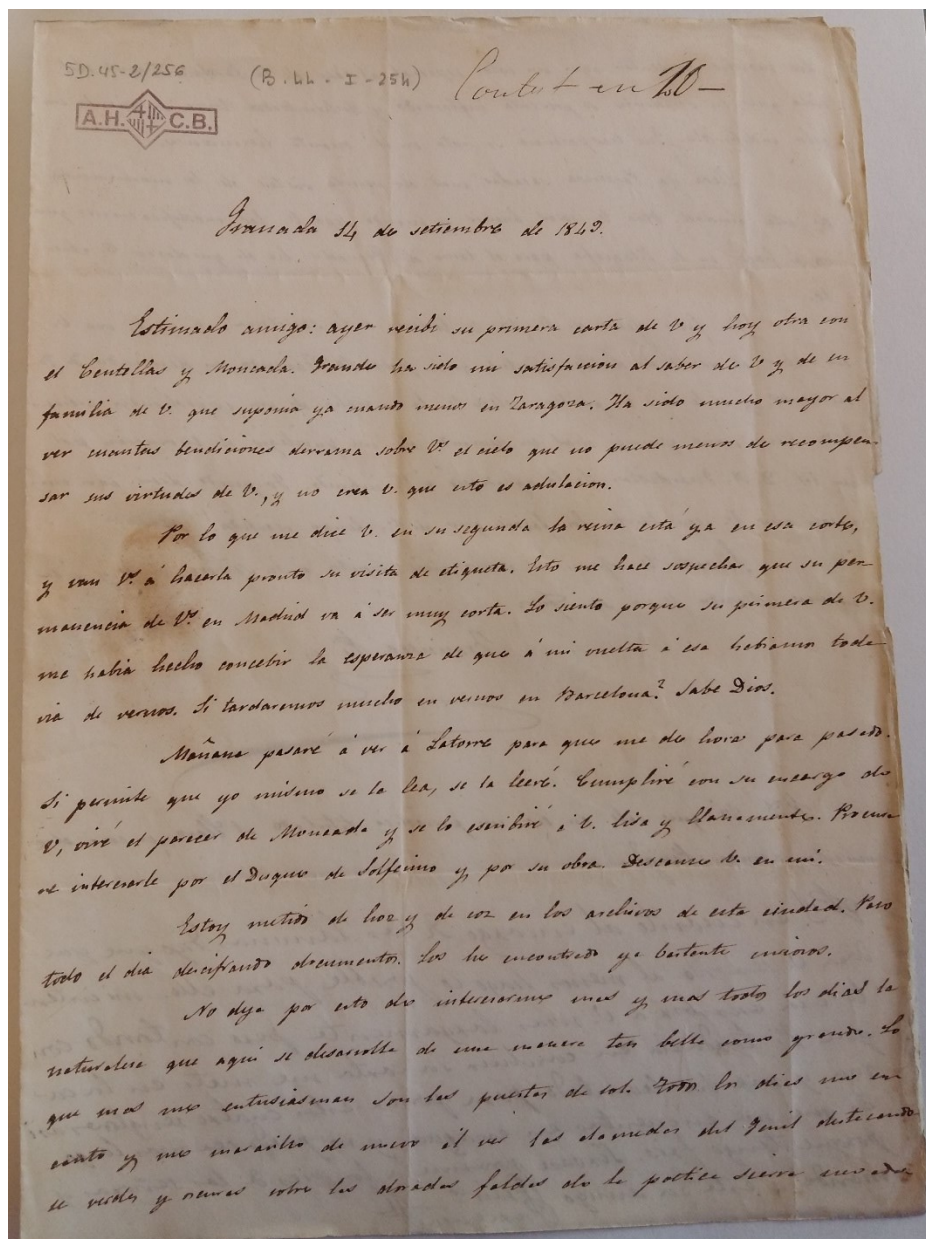 5D.45-2/256
(B.44.-I-254)
Contest en 20-
A.H. C.B.
Granada 14 de setiembre de 1849.
Estimado amigo: ayer recibi su primera carta de V y hoy otra con
el Centellas y Moncada. Grande ha sido mi satisfaccion al saber de V y de su
familia de V. que suponia ya cuando menos en Zaragoza. Ha sido mucho mayor al
ver cuantas bendiciones derrama sobre Vs el cielo que no puede menos de recompen-
sar sus virtudes de V., y no crea V. que esto es adulacion.
Por lo que me dice V. en su segunda la reina está ya en esa corte,
y van Vs á hacerla pronto su visita de etiqueta. Esto me hace sospechar que su per-
manencia de Vs en Madrid va á ser muy corta. Lo siento porque su primera de V.
me habia hecho concebir la esperanza de que á mi vuelta á esa habiamos toda
via de vernos. Si tardaremos mucho en vernos en Barcelona? Sabe Dios.
Mañana pasaré á ver á Latorre para que me dé hora para pasado.
Si permite que yo mismo se la lea, se la leeré. Cumpliré con su encargo de
V, oiré el parecer de Moncada y se lo escribiré á V. lisa y llanamente. Procura
ré interesarle por el Duque de Solferino y por su obra. Descanse V. en mi.
Estoy metido de hoz y de coz en los archivos de esta ciudad. Paso
todo el dia descifrando documentos. Los he encontrado ya bastante curiosos.
No deja por esto de interesarme mas y mas todos los dias la
naturaleza que aqui se desarrolla de una manera tan bella como grande. Lo
que mas me entusiasman son las puestas de sol. Todos los dias me en
canto y me maravillo de nuevo al ver las alamedas del Genil destacando
se verdes y oscuras sobre las doradas faldas de la poética sierra